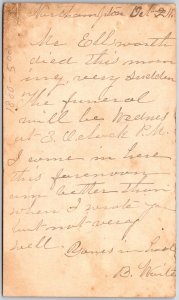 Northampton Oct
Mr Ellsworth
died this morn
ing, very sudden
The funeral
will be Wednes
at 2. O,clock P.M.
I came in here
this forenoon
am better than
when I wrote you
but not very
well.
Yours in
B.